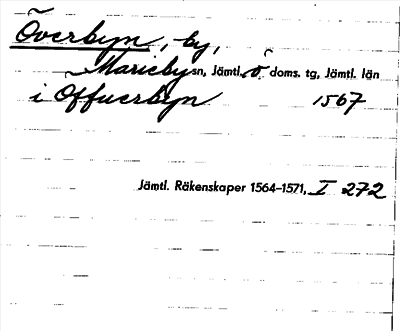 Överbyn, by,
Marieby sn, Jämtl. ö doms. tg, Jämtl. län
i Öffuerbyn 1567
Jämtl. Räkenskaper 1564–1571, I 272